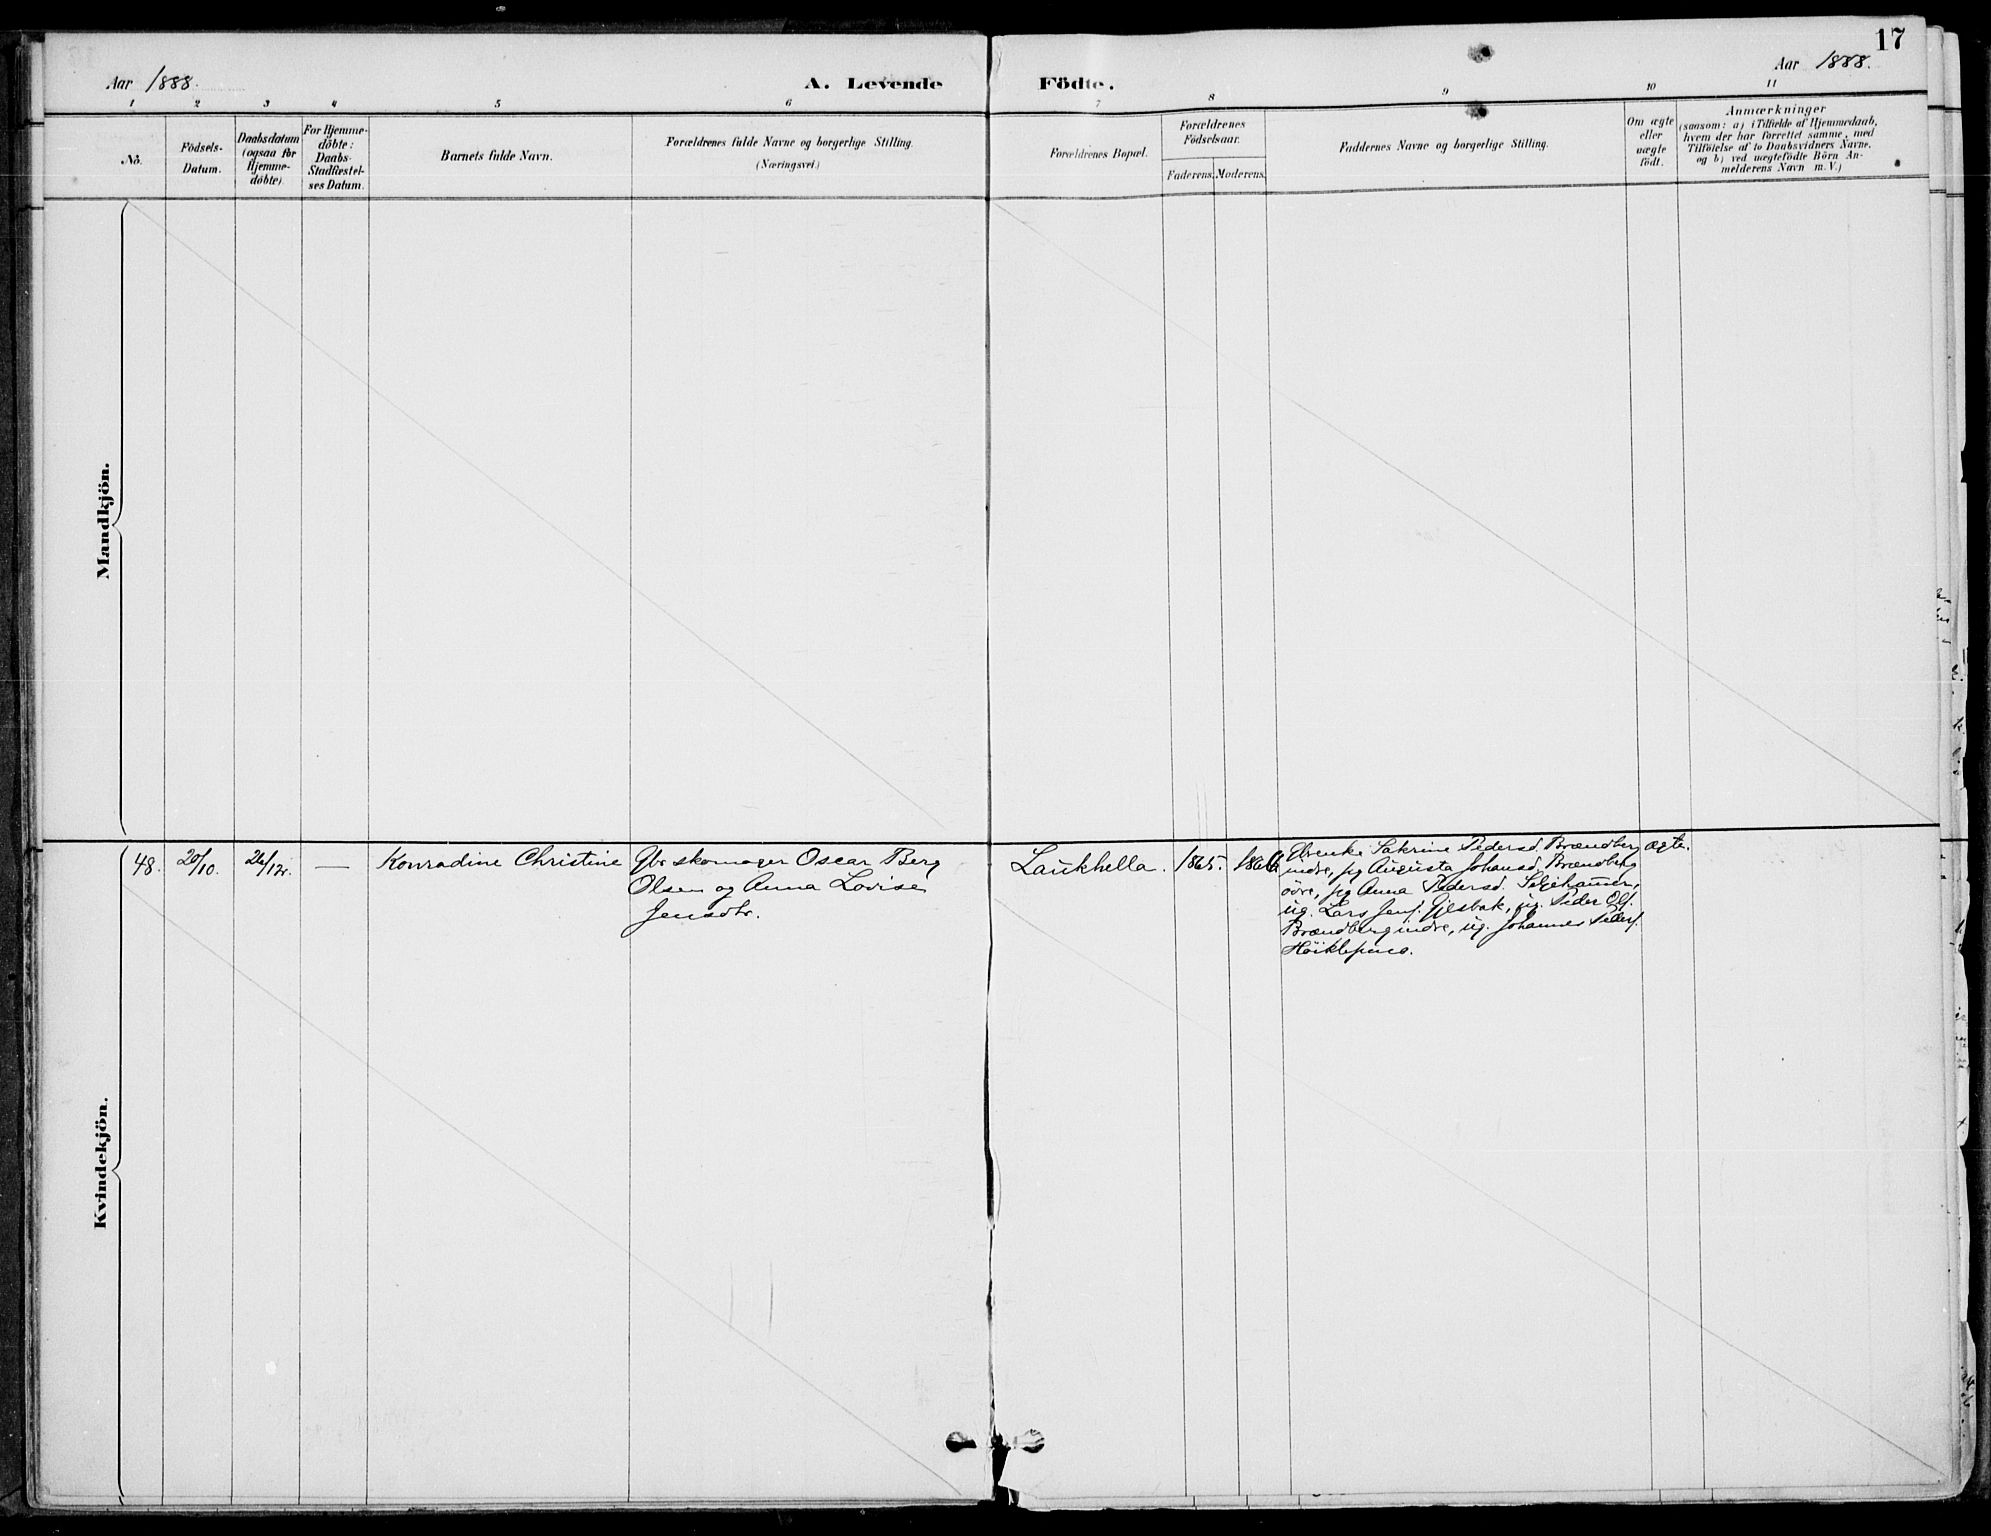 17
Aar 1888.
A. Levende Födte.
Aar 1888.
1 2 3 4 5 6 7 8 9 10 11
No.
Födsels-
Datum.
Daabsdatum
(ogsaa for
Hjemme-
döbte)
For Hjemme-
döbte:
Daabs-
Stadfæstel-
ses Datum.
Barnets fulde Navn.
Forældrenes fulde Navne og borgerlige Stilling.
(Næringsvei.)
Forældrenes Bopæl.
Forældrenes
Födselsaar.
Faderens. Moderens.
Faddernes Navne og borgerlige Stilling.
Om ægte
eller
uægte
födt.
Anmærkninger
(saasom: a) i Tilfælde af Hjemmedaab,
hvem der har forrettet samme, med
Tilföielse af to Daabsvidners Navne,
og b) ved uægtefödte Börn An-
melderens Navn m.V.)
Mandkjön.
Kvindekjön.
48. 20/10. 26/12. — Konradine Christine
skomager Oscar Berg
Olsen og Anna Lovise
Jensdtr.
Laukhella. 1865. 1866
Sakrine Pedersd. Brændberg
indre, pg Augusta Johansd. Brændberg
övre, pg Anna Pedersd.
ug. Lars Jens. Gjesbak, ug. Peder Ols.
Brændberg indre, ug. Johannes Peders.
ægte.